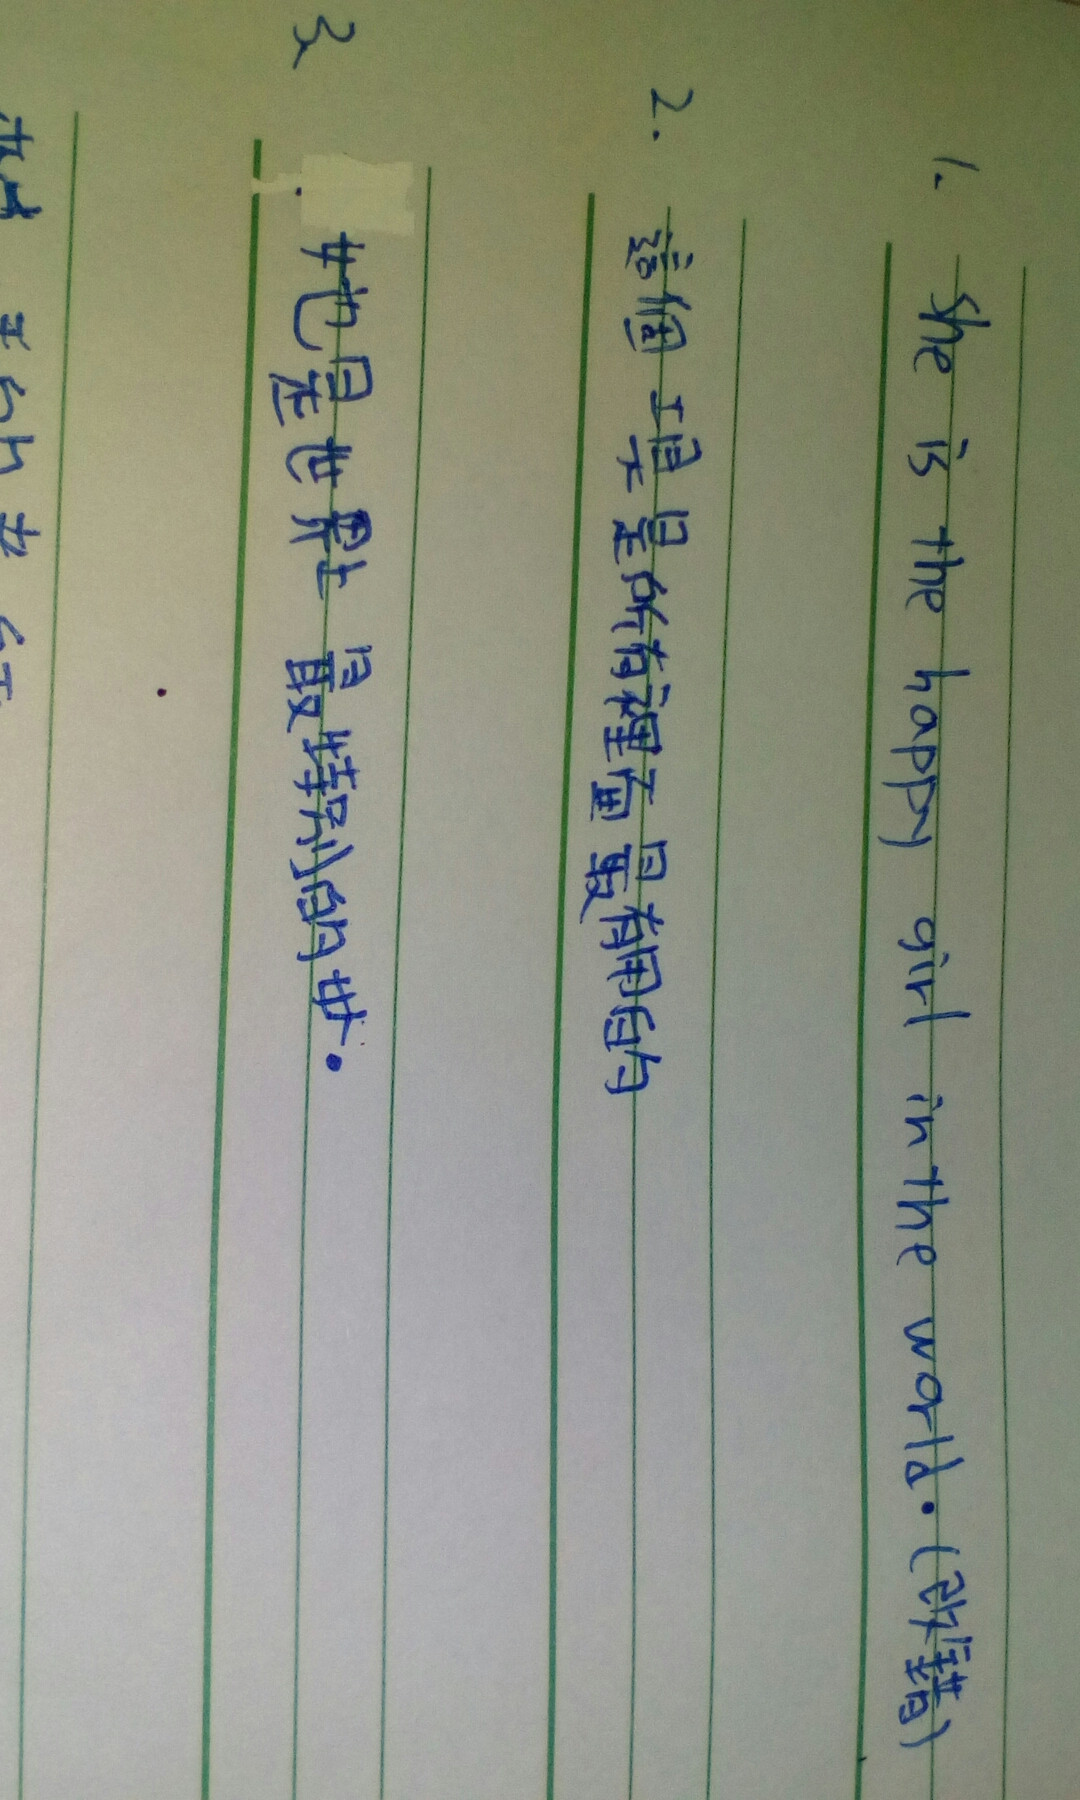 1. She is the happy girl in the world. (改錯)
2. 這個工具是所有裡面最有用的
3. 她是世界上最特別的女.